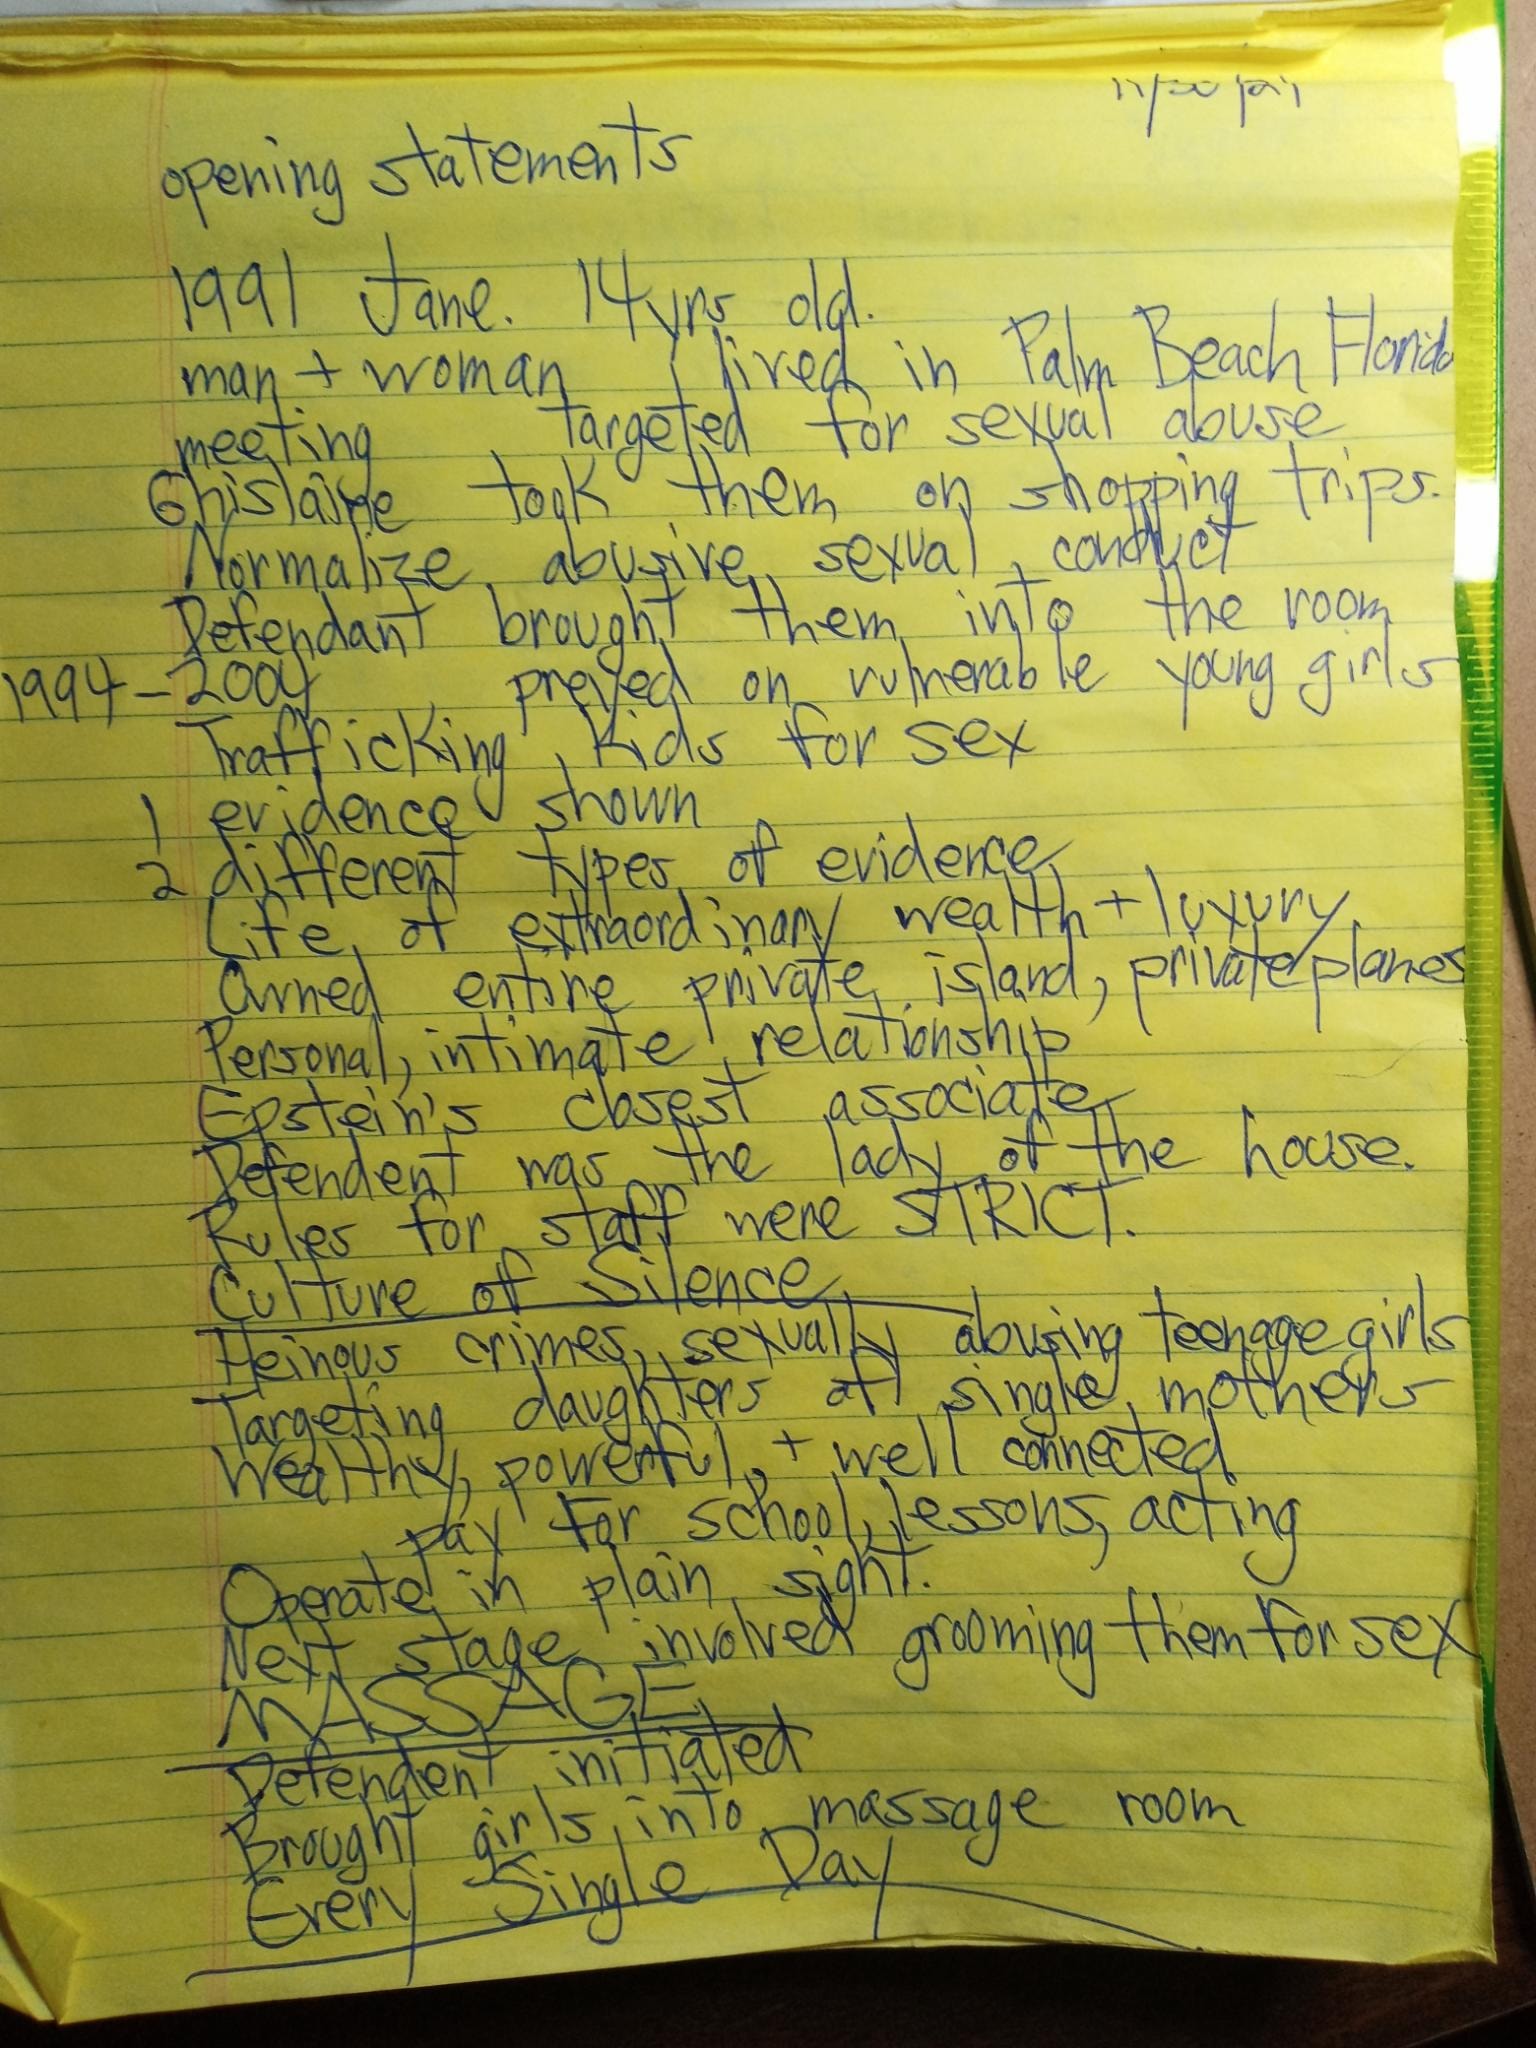 opening statements
1991 Jane. 14yrs old.
man + woman lived in Palm Beach Florida
meeting targeted for sexual abuse
Ghislaine took them on shopping trips.
Normalize abusive sexual conduct
Defendant brought them into the room
1994-2004 preyed on vulnerable young girls
Trafficking kids for sex
1 evidence shown
2 different types of evidence
Life of extraordinary wealth + luxury
Owned entire private island, private planes
Personal, intimate relationship
Epstein's closest associate
Defendent was the lady of the house.
Rules for staff were STRICT.
Culture of Silence
Heinous crimes, sexually abusing teenage girls
Targeting daughters of single mothers
Wealthy, powerful, + well connected
pay for school, lessons, acting
Operate in plain sight.
Next stage involved grooming them for sex
MASSAGE
Defendent initiated
Brought girls into massage room
Every Single Day